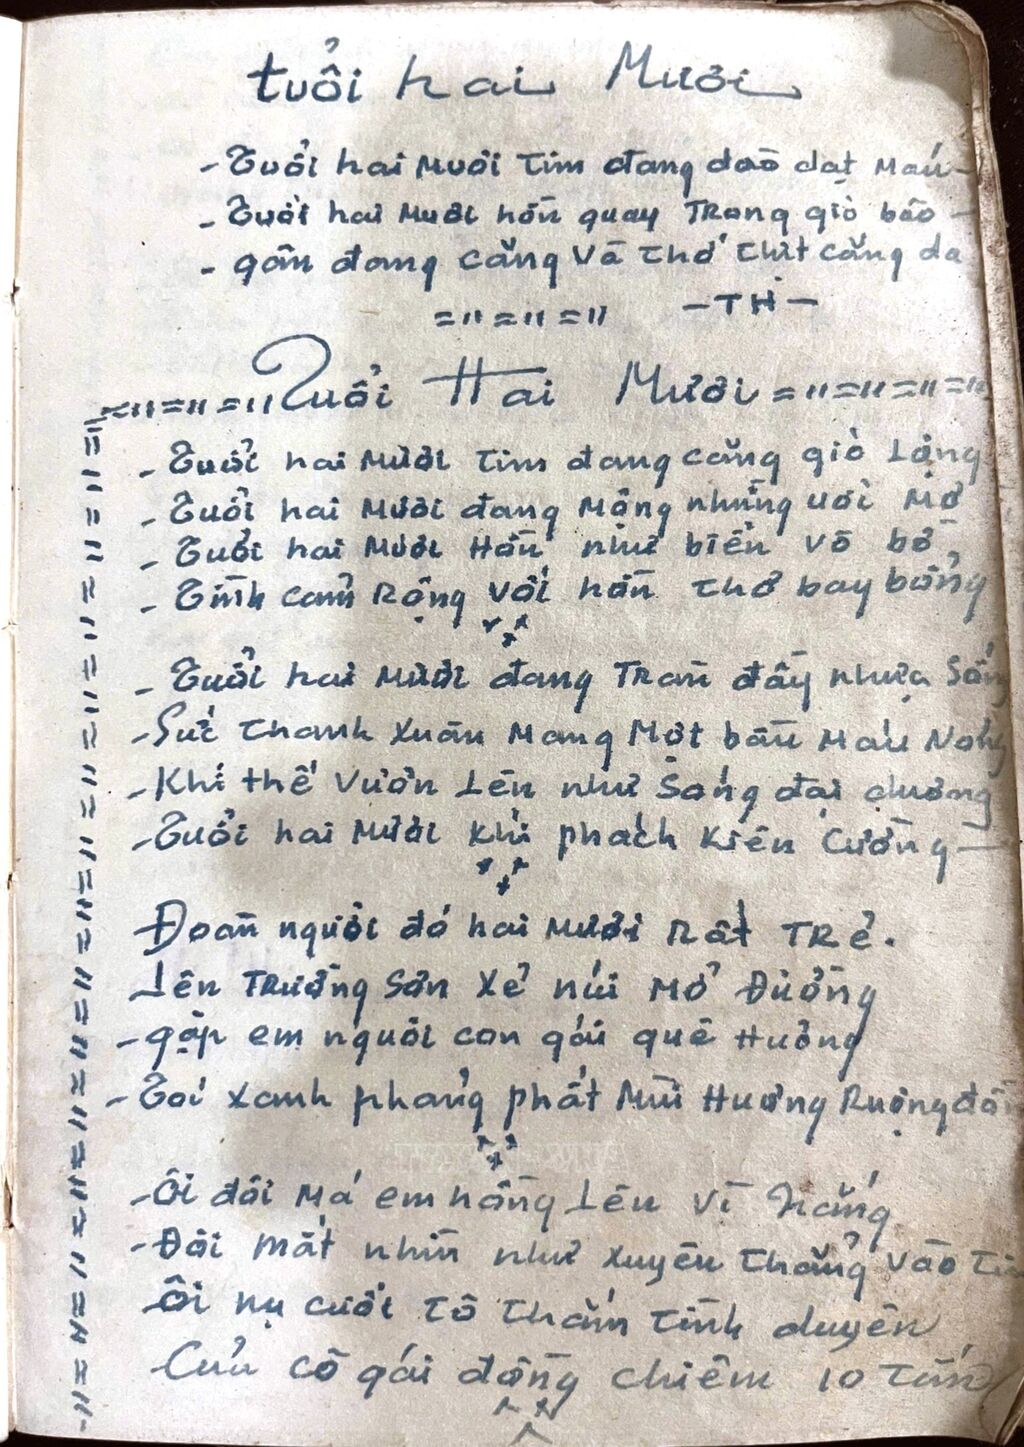 tuổi hai Mươi
- Tuổi hai Mươi Tim đang dào dạt Máu -
- Tuổi hai Mươi hồn quay Trong gió bão -
- gân đang căng và thớ thịt căng da
- TH -
Tuổi Hai Mươi
- Tuổi hai Mươi Tim đang căng gió Lộng
- Tuổi hai Mươi đang Mộng những ươi Mơ
- Tuổi hai Mươi Hồn như biển vô bờ,
- Tình cảm Rộng với hồn thơ bay bổng
- Tuổi hai Mươi đang Tràn đầy nhựa Sống
- Sức thanh xuân Mang Một bầu Máu Nóng
- Khí thế Vươn Lên như Sóng đại dương
- Tuổi hai Mươi khí phách kiên Cường -
- Đoàn người đó hai Mươi Rất TRẻ.
- Lên TRường Sơn xẻ núi Mở Đường
- gặp em người con gái quê Hương
- Tóc xanh phảng phất Mùi Hương Ruộng
- Ôi đôi Má em hồng Lên Vì Nắng
- Đôi mắt nhìn như xuyên thẳng vào
- Ôi nụ cười tô thắm tình duyên
- Của cô gái đồng chiêm 10 Tấn